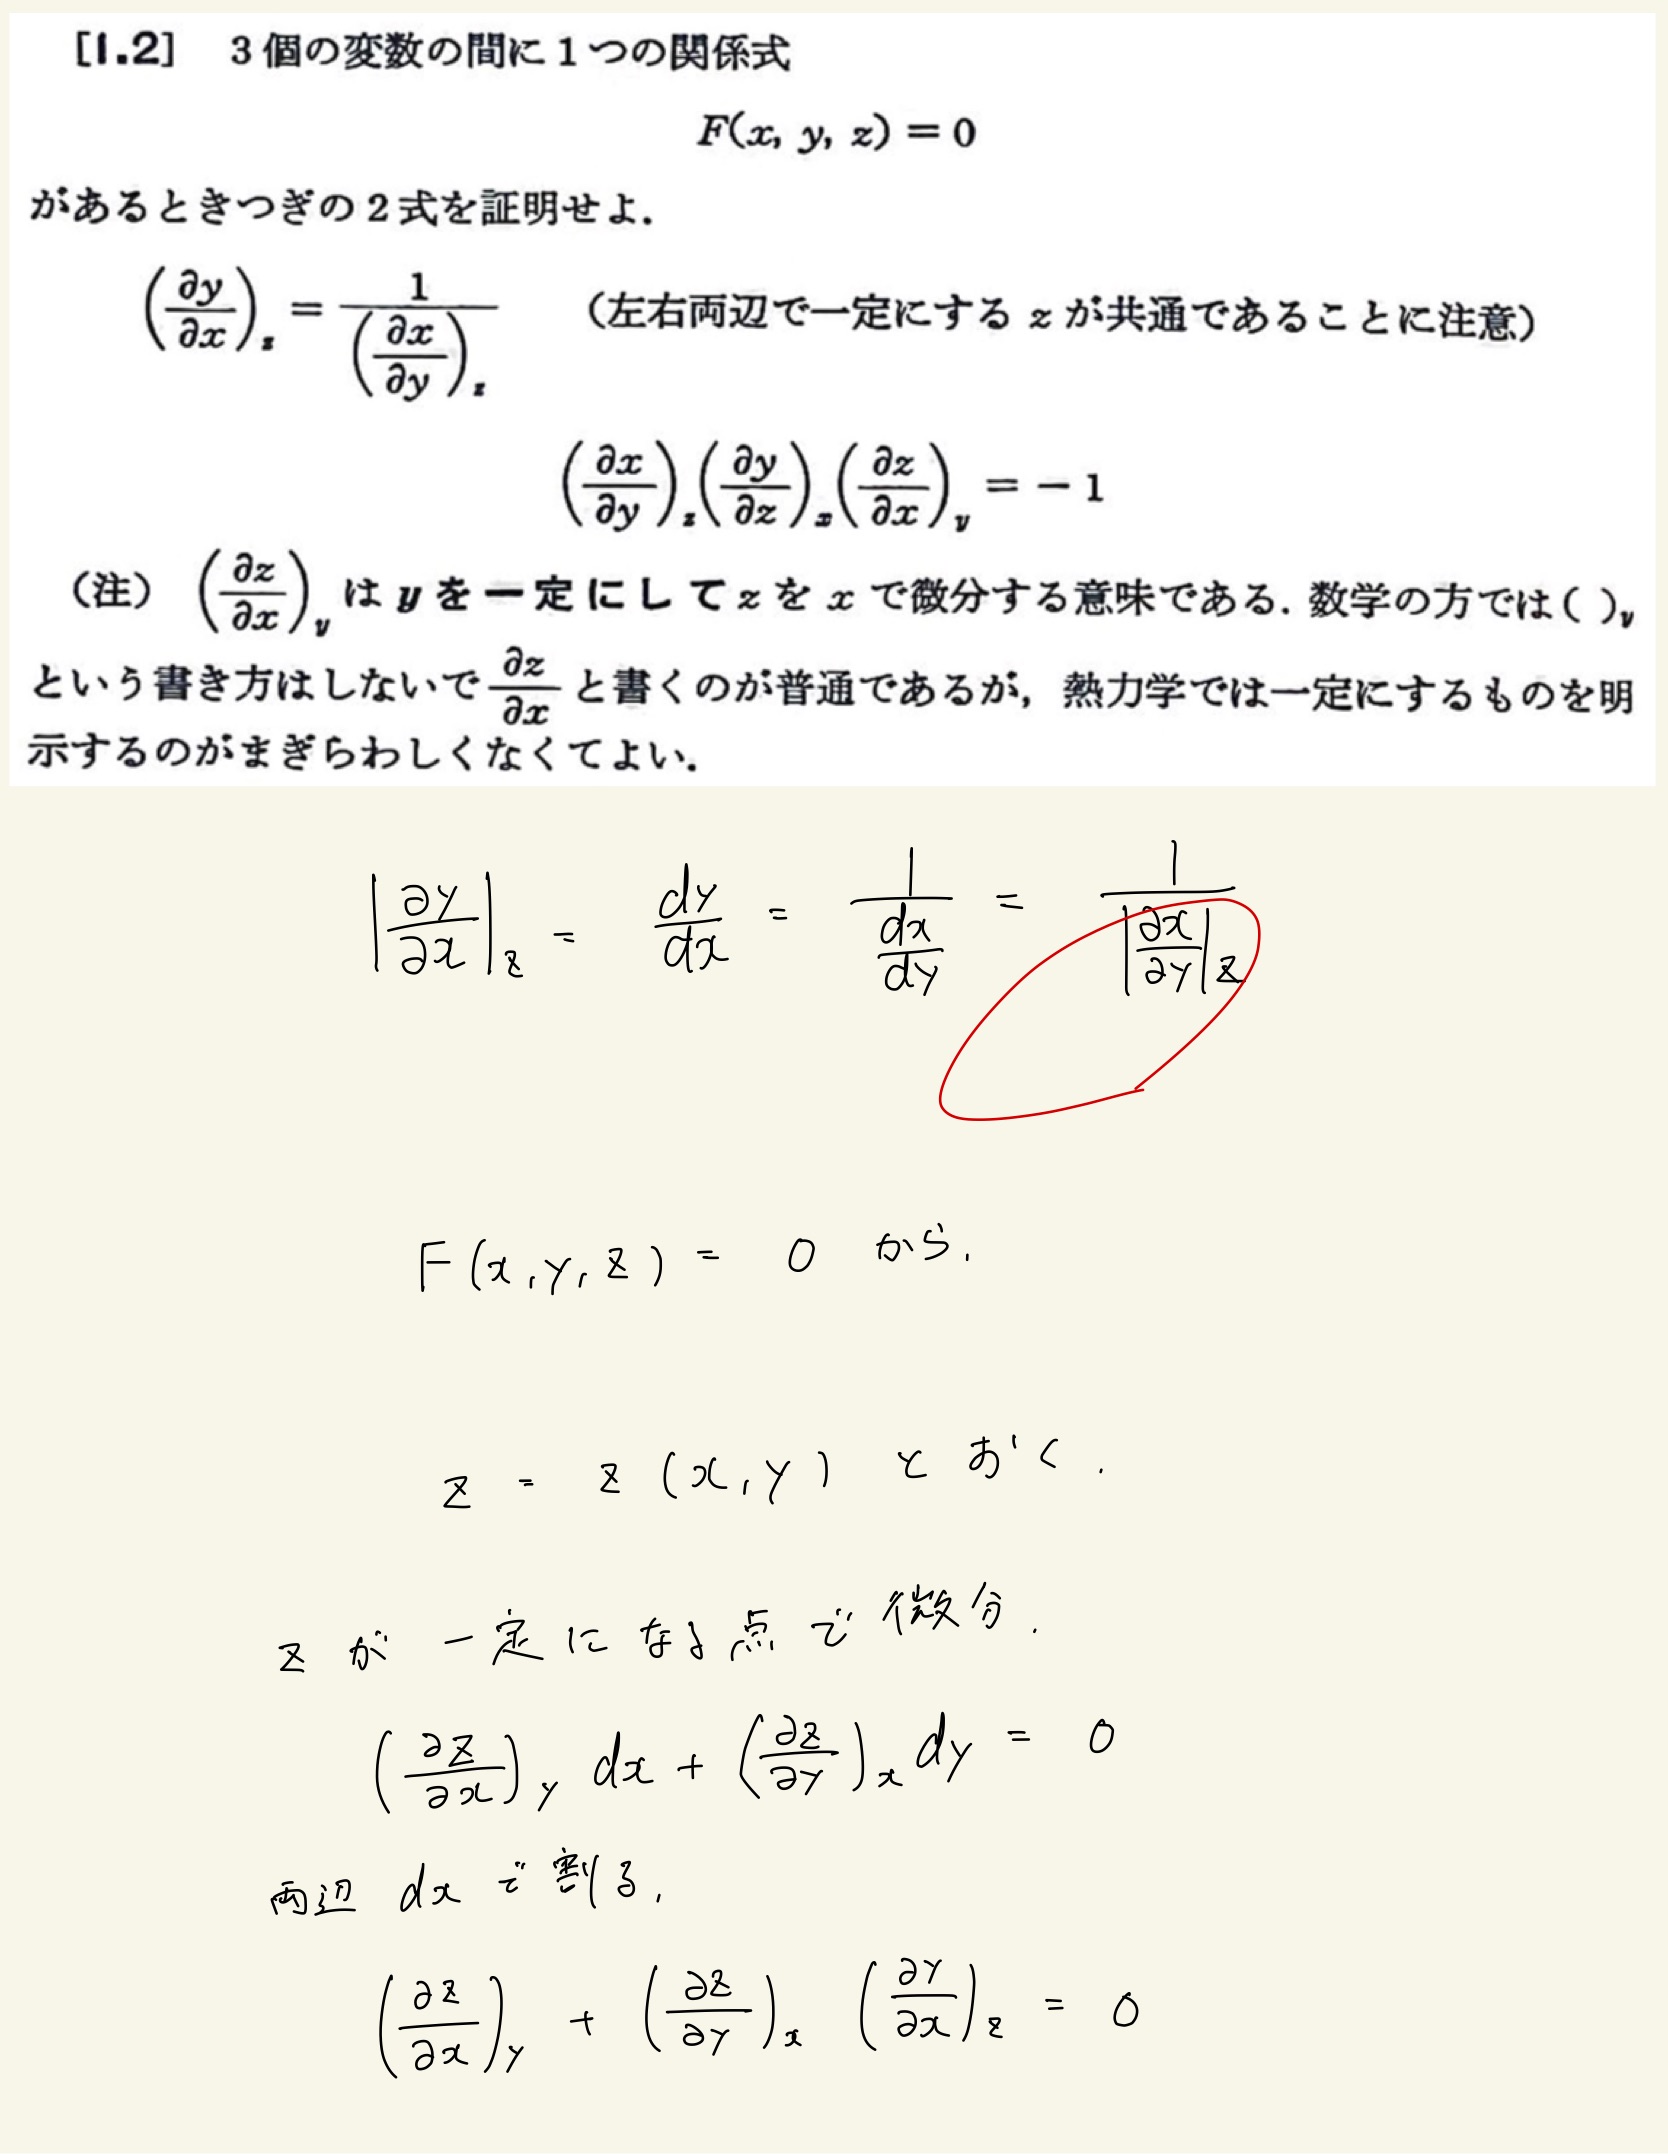 [1.2] 3個の変数の間に1つの関係式
F(x, y, z) = 0
があるときつぎの2式を証明せよ.
(∂y/∂x)_z = 1/(∂x/∂y)_z (左右両辺で一定にする z が共通であることに注意)
(∂x/∂y)_z (∂y/∂z)_x (∂z/∂x)_y = −1
(注) (∂z/∂x)_y は y を一定にして z を x で微分する意味である. 数学の方では( )_y
という書き方はしないで ∂z/∂x と書くのが普通であるが, 熱力学では一定にするものを明
示するのがまぎらわしくなくてよい.
|∂y/∂x|_z = dy/dx = 1/(dx/dy) = 1/|∂x/∂y|_z
F(x, y, z) = 0 から.
z = z (x, y) とおく.
z が 一定に なる点で 微分.
(∂z/∂x)_y dx + (∂z/∂y)_x dy = 0
両辺 dx で割る.
(∂z/∂x)_y + (∂z/∂y)_x (∂y/∂x)_z = 0